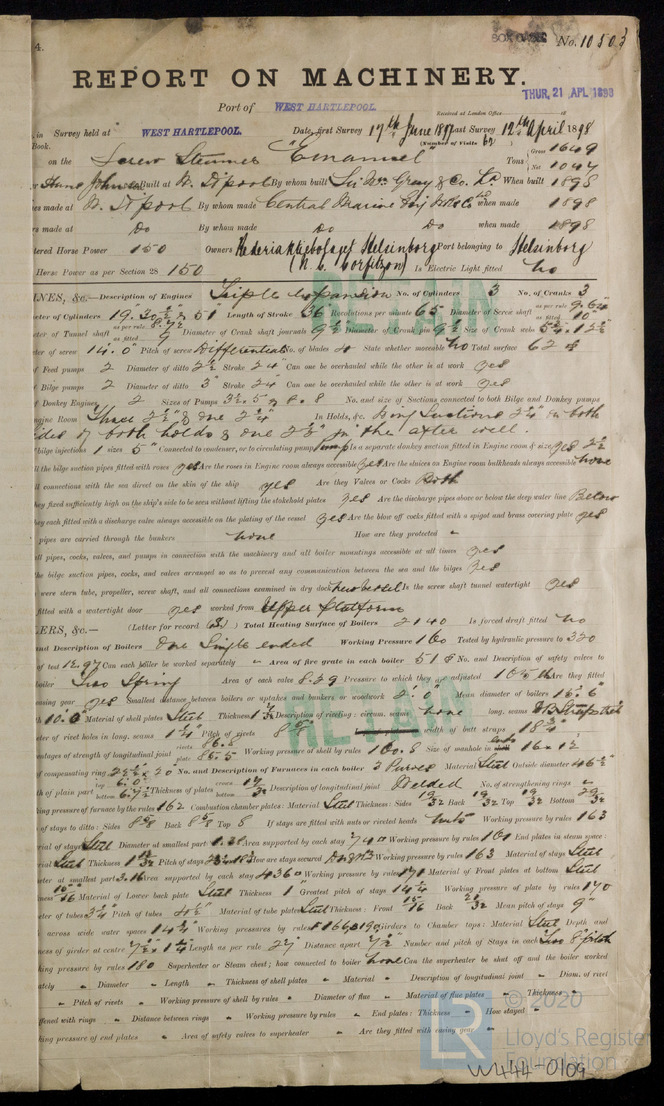 4.
No. 10503
REPORT ON MACHINERY.
THUR, 21 APL 1898
Port of WEST HARTLEPOOL.
Received at London Office
in Survey held at WEST HARTLEPOOL. Date, first Survey 17th June 1897 Last Survey 12th April 1898
Book. (Number of Visits 62)
on the Screw Steamer "Emanuel" Tons Gross 1649 Net 1047
Built at W. H'pool By whom built Sir Wm Gray & Co. Ld When built 1898
es made at W. H'pool By whom made Central Marine Eng Wks when made 1898
rs made at Do By whom made Do Do when made 1898
tered Horse Power 150 Owners Port belonging to Helsinborg
Horse Power as per Section 28 150 Is Electric Light fitted No
INES, &c.—Description of Engines Triple Expansion No. of Cylinders 3 No. of Cranks 3
eter of Cylinders 19. 30½ & 51 Length of Stroke 36 Revolutions per minute 65 Diameter of Screw shaft as per rule 9.64 as fitted 10"
eter of Tunnel shaft as per rule as fitted 9 Diameter of Crank shaft journals 9½ Diameter of Crank pin 9½ Size of Crank webs
eter of screw 14.0 Pitch of screw Differential No. of blades 4 State whether moveable No Total surface 62
of Feed pumps 2 Diameter of ditto Stroke 24" Can one be overhauled while the other is at work yes
of Bilge pumps 2 Diameter of ditto 3" Stroke 24 Can one be overhauled while the other is at work yes
of Donkey Engines 2 Sizes of Pumps No. and size of Suctions connected to both Bilge and Donkey pumps
ngine Room Three 2½" & one 2¼" In Holds, &c. Suctions 2¼" in both
sides of both holds & one 2½" in the after well.
bilge injections 1 sizes 5" Connected to condenser, or to circulating pump Pump Is a separate donkey suction fitted in Engine room & size yes 2½
ll the bilge suction pipes fitted with roses yes Are the roses in Engine room always accessible yes Are the sluices on Engine room bulkheads always accessible none
ll connections with the sea direct on the skin of the ship yes Are they Valves or Cocks Both
hey fixed sufficiently high on the ship's side to be seen without lifting the stokehold plates yes Are the discharge pipes above or below the deep water line Below
hey each fitted with a discharge valve always accessible on the plating of the vessel yes Are the blow off cocks fitted with a spigot and brass covering plate yes
pipes are carried through the bunkers none How are they protected "
ll pipes, cocks, valves, and pumps in connection with the machinery and all boiler mountings accessible at all times yes
he bilge suction pipes, cocks, and valves arranged so as to prevent any communication between the sea and the bilges yes
were stern tube, propeller, screw shaft, and all connections examined in dry dock new vessel Is the screw shaft tunnel watertight yes
fitted with a watertight door yes worked from Upper Platform
ERS, &c.— (Letter for record (S)) Total Heating Surface of Boilers 2140 Is forced draft fitted No
and Description of Boilers One Single ended Working Pressure 160 Tested by hydraulic pressure to 320
of test Can each boiler be worked separately " Area of fire grate in each boiler 51 No. and Description of safety valves to
boiler Two Spring Area of each valve 8.29 Pressure to which they are adjusted Are they fitted
easing gear yes Smallest distance between boilers or uptakes and bunkers or woodwork 2'.0" Mean diameter of boilers 15'.6"
th 10'.0" Material of shell plates Steel Thickness Description of riveting: circum. seams none long. seams
eter of rivet holes in long. seams Pitch of rivets width of butt straps
entages of strength of longitudinal joint rivets 86.5 plate 85.5 Working pressure of shell by rules 160.8 Size of manhole in 16 x 12
of compensating ring No. and Description of Furnaces in each boiler 3 Purves Material Steel Outside diameter 46½
th of plain part top 6'.0" bottom Thickness of plates crown bottom Description of longitudinal joint Welded No. of strengthening rings "
ing pressure of furnace by the rules 162 Combustion chamber plates: Material Steel Thickness: Sides 19/32 Back 19/32 Top 19/32 Bottom
of stays to ditto: Sides 8⅝ Back 8⅝ Top 8 If stays are fitted with nuts or riveted heads Nuts Working pressure by rules 163
rial of stays Steel Diameter at smallest part Area supported by each stay Working pressure by rules End plates in steam space:
rial Steel Thickness Pitch of stays How are stays secured Working pressure by rules 163 Material of stays Steel
eter at smallest part Area supported by each stay Working pressure by rules Material of Front plates at bottom Steel
ness 15/16 Material of Lower back plate Steel Thickness 1" Greatest pitch of stays 14¼ Working pressure of plate by rules 170
eter of tubes 3¼ Pitch of tubes Material of tube plates Steel Thickness: Front 15/16 Back Mean pitch of stays 9"
across wide water spaces 14¼ Working pressures by rules Girders to Chamber tops: Material Steel Depth and
ness of girder at centre Length as per rule 27 Distance apart 7½ Number and pitch of Stays in each Two 8 pitch
king pressure by rules 180 Superheater or Steam chest; how connected to boiler none Can the superheater be shut off and the boiler worked
ately " Diameter " Length " Thickness of shell plates " Material " Description of longitudinal joint " Diam. of rivet
" Pitch of rivets " Working pressure of shell by rules " Diameter of flue " Material of flue plates " Thickness "
ffened with rings " Distance between rings " Working pressure by rules " End plates: Thickness " How stayed "
king pressure of end plates " Area of safety valves to superheater " Are they fitted with easing gear "
© 2020
Lloyd's Register
Foundation
W444-0109